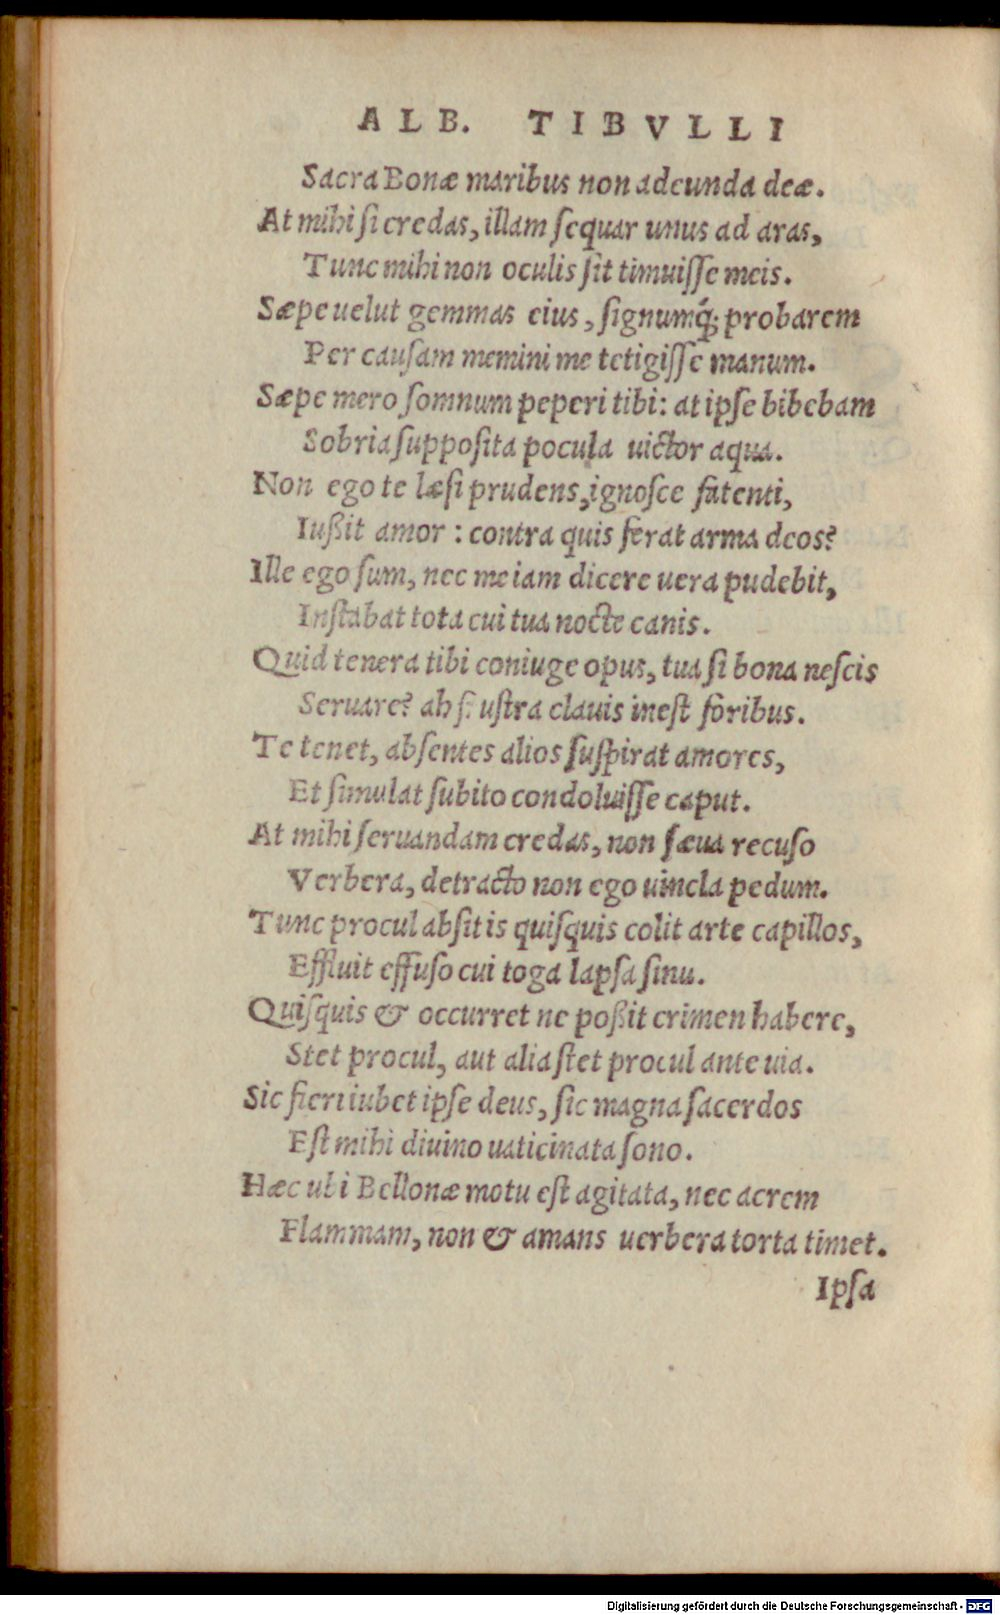 ALB. TIBVLLI
Sacra Bonæ maribus non adeunda deæ.
At mihi si credas, illam sequar unus ad aras,
Tunc mihi non oculis sit timuisse meis.
Sæpe uelut gemmas eius, signumq́; probarem
Per causam memini me tetigisse manum.
Sæpe mero somnum peperi tibi: at ipse bibebam
Sobria supposita pocula uictor aqua.
Non ego te læsi prudens, ignosce fatenti,
Iußit amor: contra quis ferat arma deos?
Ille ego sum, nec me iam dicere uera pudebit,
Instabat tota cui tua nocte canis.
Quid tenera tibi coniuge opus, tua si bona nescis
Seruare? ah frustra clauis inest foribus.
Te tenet, absentes alios suspirat amores,
Et simulat subito condoluisse caput.
At mihi seruandam credas, non sæua recuso
Verbera, detracto non ego uincla pedum.
Tunc procul absitis quisquis colit arte capillos,
Effluit effuso cui toga lapsa sinu.
Quisquis & occurret ne poßit crimen habere,
Stet procul, aut alia stet procul ante uia.
Sic fieri iubet ipse deus, sic magna sacerdos
Est mihi diuino uaticinata sono.
Hæc ubi Bellonæ motu est agitata, nec acrem
Flammam, non & amans uerbera torta timet.
Ipsa
Digitalisierung gefördert durch die Deutsche Forschungsgemeinschaft - DFG